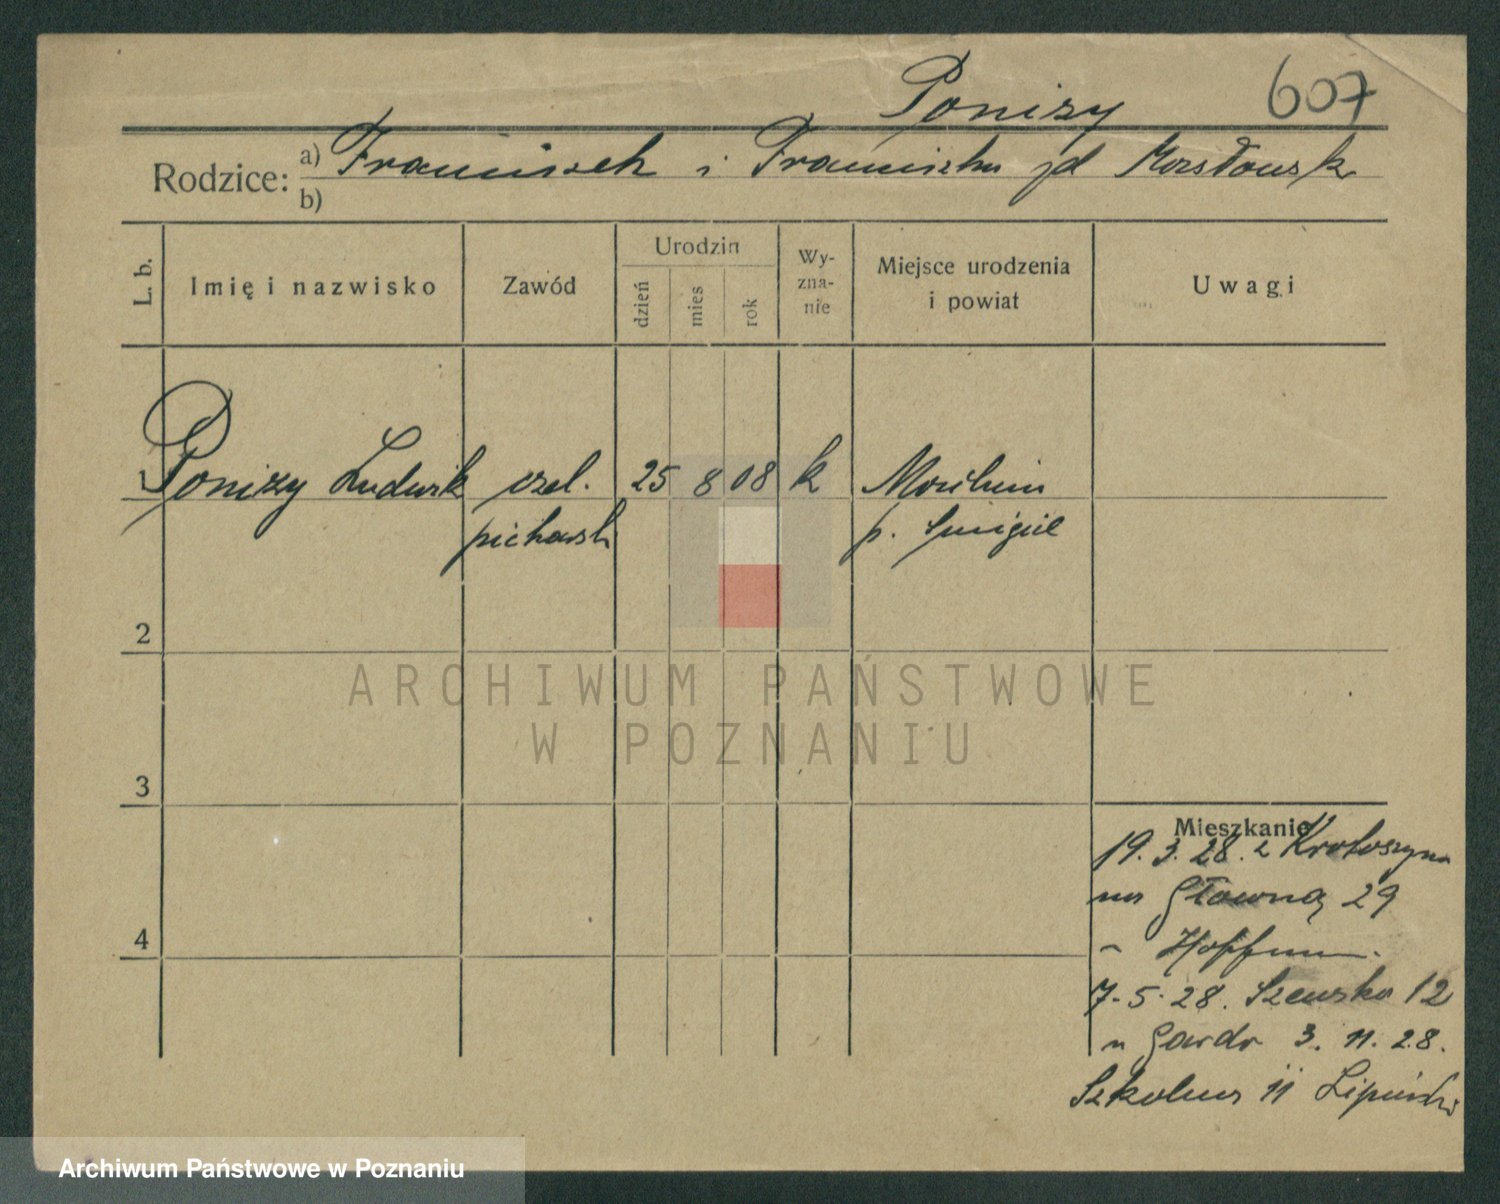 Ponizy 607
Rodzice: a) Franciszek i Franciszka jd
b)
L. b. Imię i nazwisko Zawód Urodzin dzień mies rok Wy-zna-nie Miejsce urodzenia i powiat Uwagi
1 Ponizy Ludwik czel. 25 8 08 k
piekarsk p. Smigiel
2
ARCHIWUM PAŃSTWOWE
W POZNANIU
3
Mieszkanie
19. 3. 28. z Krotoszyna
na Główną 29
Hoffm
4
7. 5. 28. Szewska 12
3. 11. 28.
Szkolna 11
Archiwum Państwowe w Poznaniu